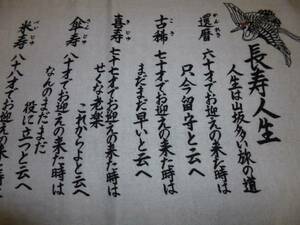 長寿人生
人生は山坂多い旅の道
還暦
かんれき
六十才でお迎えの来た時は
只今留守と云へ
古稀
こき
七十才でお迎えの来た時は
まだまだ早いと云へ
喜寿
きじゅ
七十七才でお迎えの来た時は
せくな老楽
これからよと云へ
傘寿
さんじゅ
八十才でお迎えの来た時は
なんのまだまだ
役に立つと云へ
米寿
べいじゅ
八十八才でお迎えの来た時は